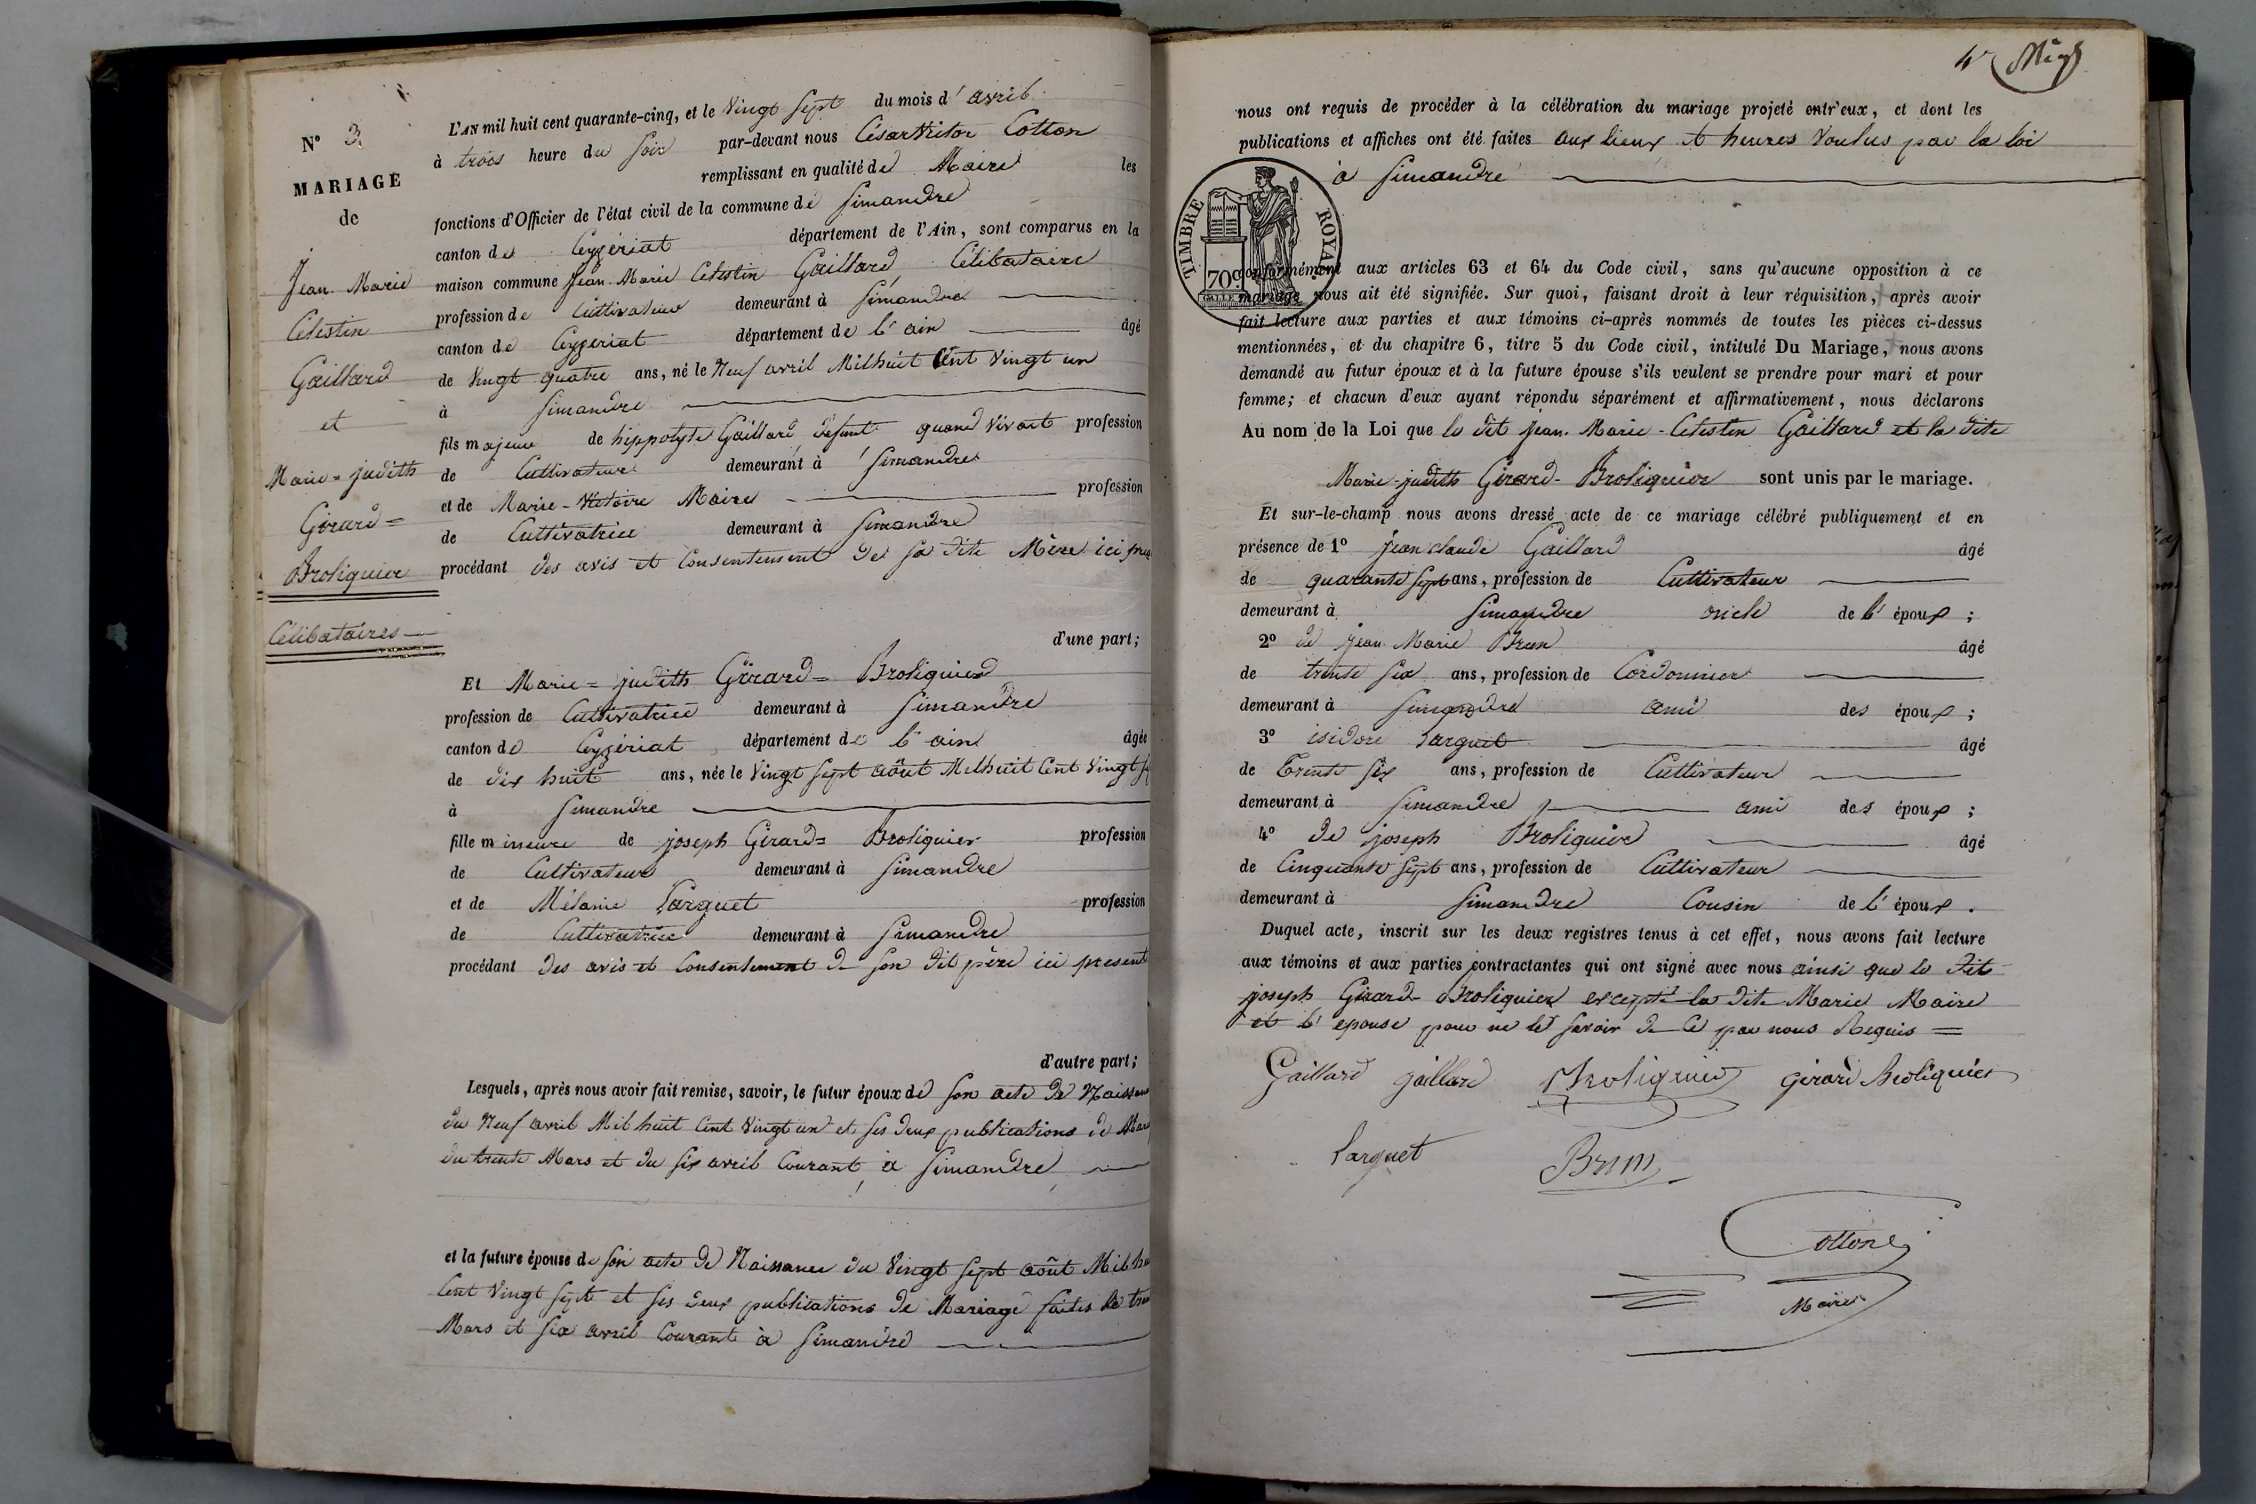 N° 3
MARIAGE
de
Jean Marie
Célestin
Gaillard
et
Marie = judith
Girard =
Broliquier
Célibataires
L'AN mil huit cent quarante-cinq, et le Vingt Sept du mois d'avril
à trois heure du Soir par-devant nous César Victor Cotton
remplissant en qualité de Maire les
fonctions d'Officier de l'état civil de la commune de Simandre
canton de Ceyzériat département de l'Ain, sont comparus en la
maison commune Jean Marie Célestin Gaillard, Célibataire
profession de Cultivateur demeurant à Simandre
canton de Ceyzeriat département de l'ain âgé
de Vingt quatre ans, né le Neuf avril Mil huit Cent Vingt un
à Simandre
fils majeur de hippolyte Gaillard, défunt quand Vivait profession
de Cultivateur demeurant à Simandre
et de Marie - Victoire Maire profession
de Cultivatrice demeurant à Simandre
procédant des avis et Consentement de Sa dite Mère ici
d'une part;
Et Marie = judith Girard = Broliquier
profession de Cultivatrice demeurant à Simandre
canton de Ceyzériat département de l'ain âgée
de dix huit ans, née le Vingt Sept août Mil huit Cent Vingt
à Simandre
fille mineure de joseph Girard = Broliquier profession
de Cultivateur demeurant à Simandre
et de Mélanie Larguet profession
de Cultivatrice demeurant à Simandre
procédant des avis et Consentement de Son dit père ici present
d'autre part;
Lesquels, après nous avoir fait remise, savoir, le futur époux de Son acte de
du Neuf avril Mil huit Cent Vingt un et Ses deux publications de
du trente Mars et du Six avril Courant, à Simandre,
et la future épouse de Son acte de Naissance du Vingt Sept août Mil
Cent Vingt Sept et Ses deux publications de Mariage faites le
Mars et Six avril Courant à Simandre
4
nous ont requis de procéder à la célébration du mariage projeté entr'eux, et dont les
publications et affiches ont été faites aux lieux et heures Voulus par la loi
à Simandre
TIMBRE ROYAL
70c
conformément aux articles 63 et 64 du Code civil, sans qu'aucune opposition à ce
mariage nous ait été signifiée. Sur quoi, faisant droit à leur réquisition, après avoir
fait lecture aux parties et aux témoins ci-après nommés de toutes les pièces ci-dessus
mentionnées, et du chapitre 6, titre 5 du Code civil, intitulé Du Mariage, nous avons
demandé au futur époux et à la future épouse s'ils veulent se prendre pour mari et pour
femme; et chacun d'eux ayant répondu séparément et affirmativement, nous déclarons
Au nom de la Loi que le dit Jean Marie - Célestin Gaillard et la dite
Marie - judith Girard - Broliquier sont unis par le mariage.
Et sur-le-champ nous avons dressé acte de ce mariage célébré publiquement et en
présence de 1° Jean Claude Gaillard âgé
de quarante Sept ans, profession de Cultivateur
demeurant à Simandre oncle de l'époux;
2° de Jean Marie Brun âgé
de trente Six ans, profession de Cordonnier
demeurant à Simandre ami des époux;
3° isidore Larguet âgé
de Trente Six ans, profession de Cultivateur
demeurant à Simandre ami des époux;
4° de joseph Broliquier âgé
de Cinquante Sept ans, profession de Cultivateur
demeurant à Simandre Cousin de l'époux.
Duquel acte, inscrit sur les deux registres tenus à cet effet, nous avons fait lecture
aux témoins et aux parties contractantes qui ont signé avec nous ainsi que le dit
joseph Girard - Broliquier excepté la dite Marie Maire
et l'epouse pour ne le Savoir de Ce par nous Requis =
Gaillard gaillard Broliquier Girard Broliquier
Larguet Brun
Cotton
Maire